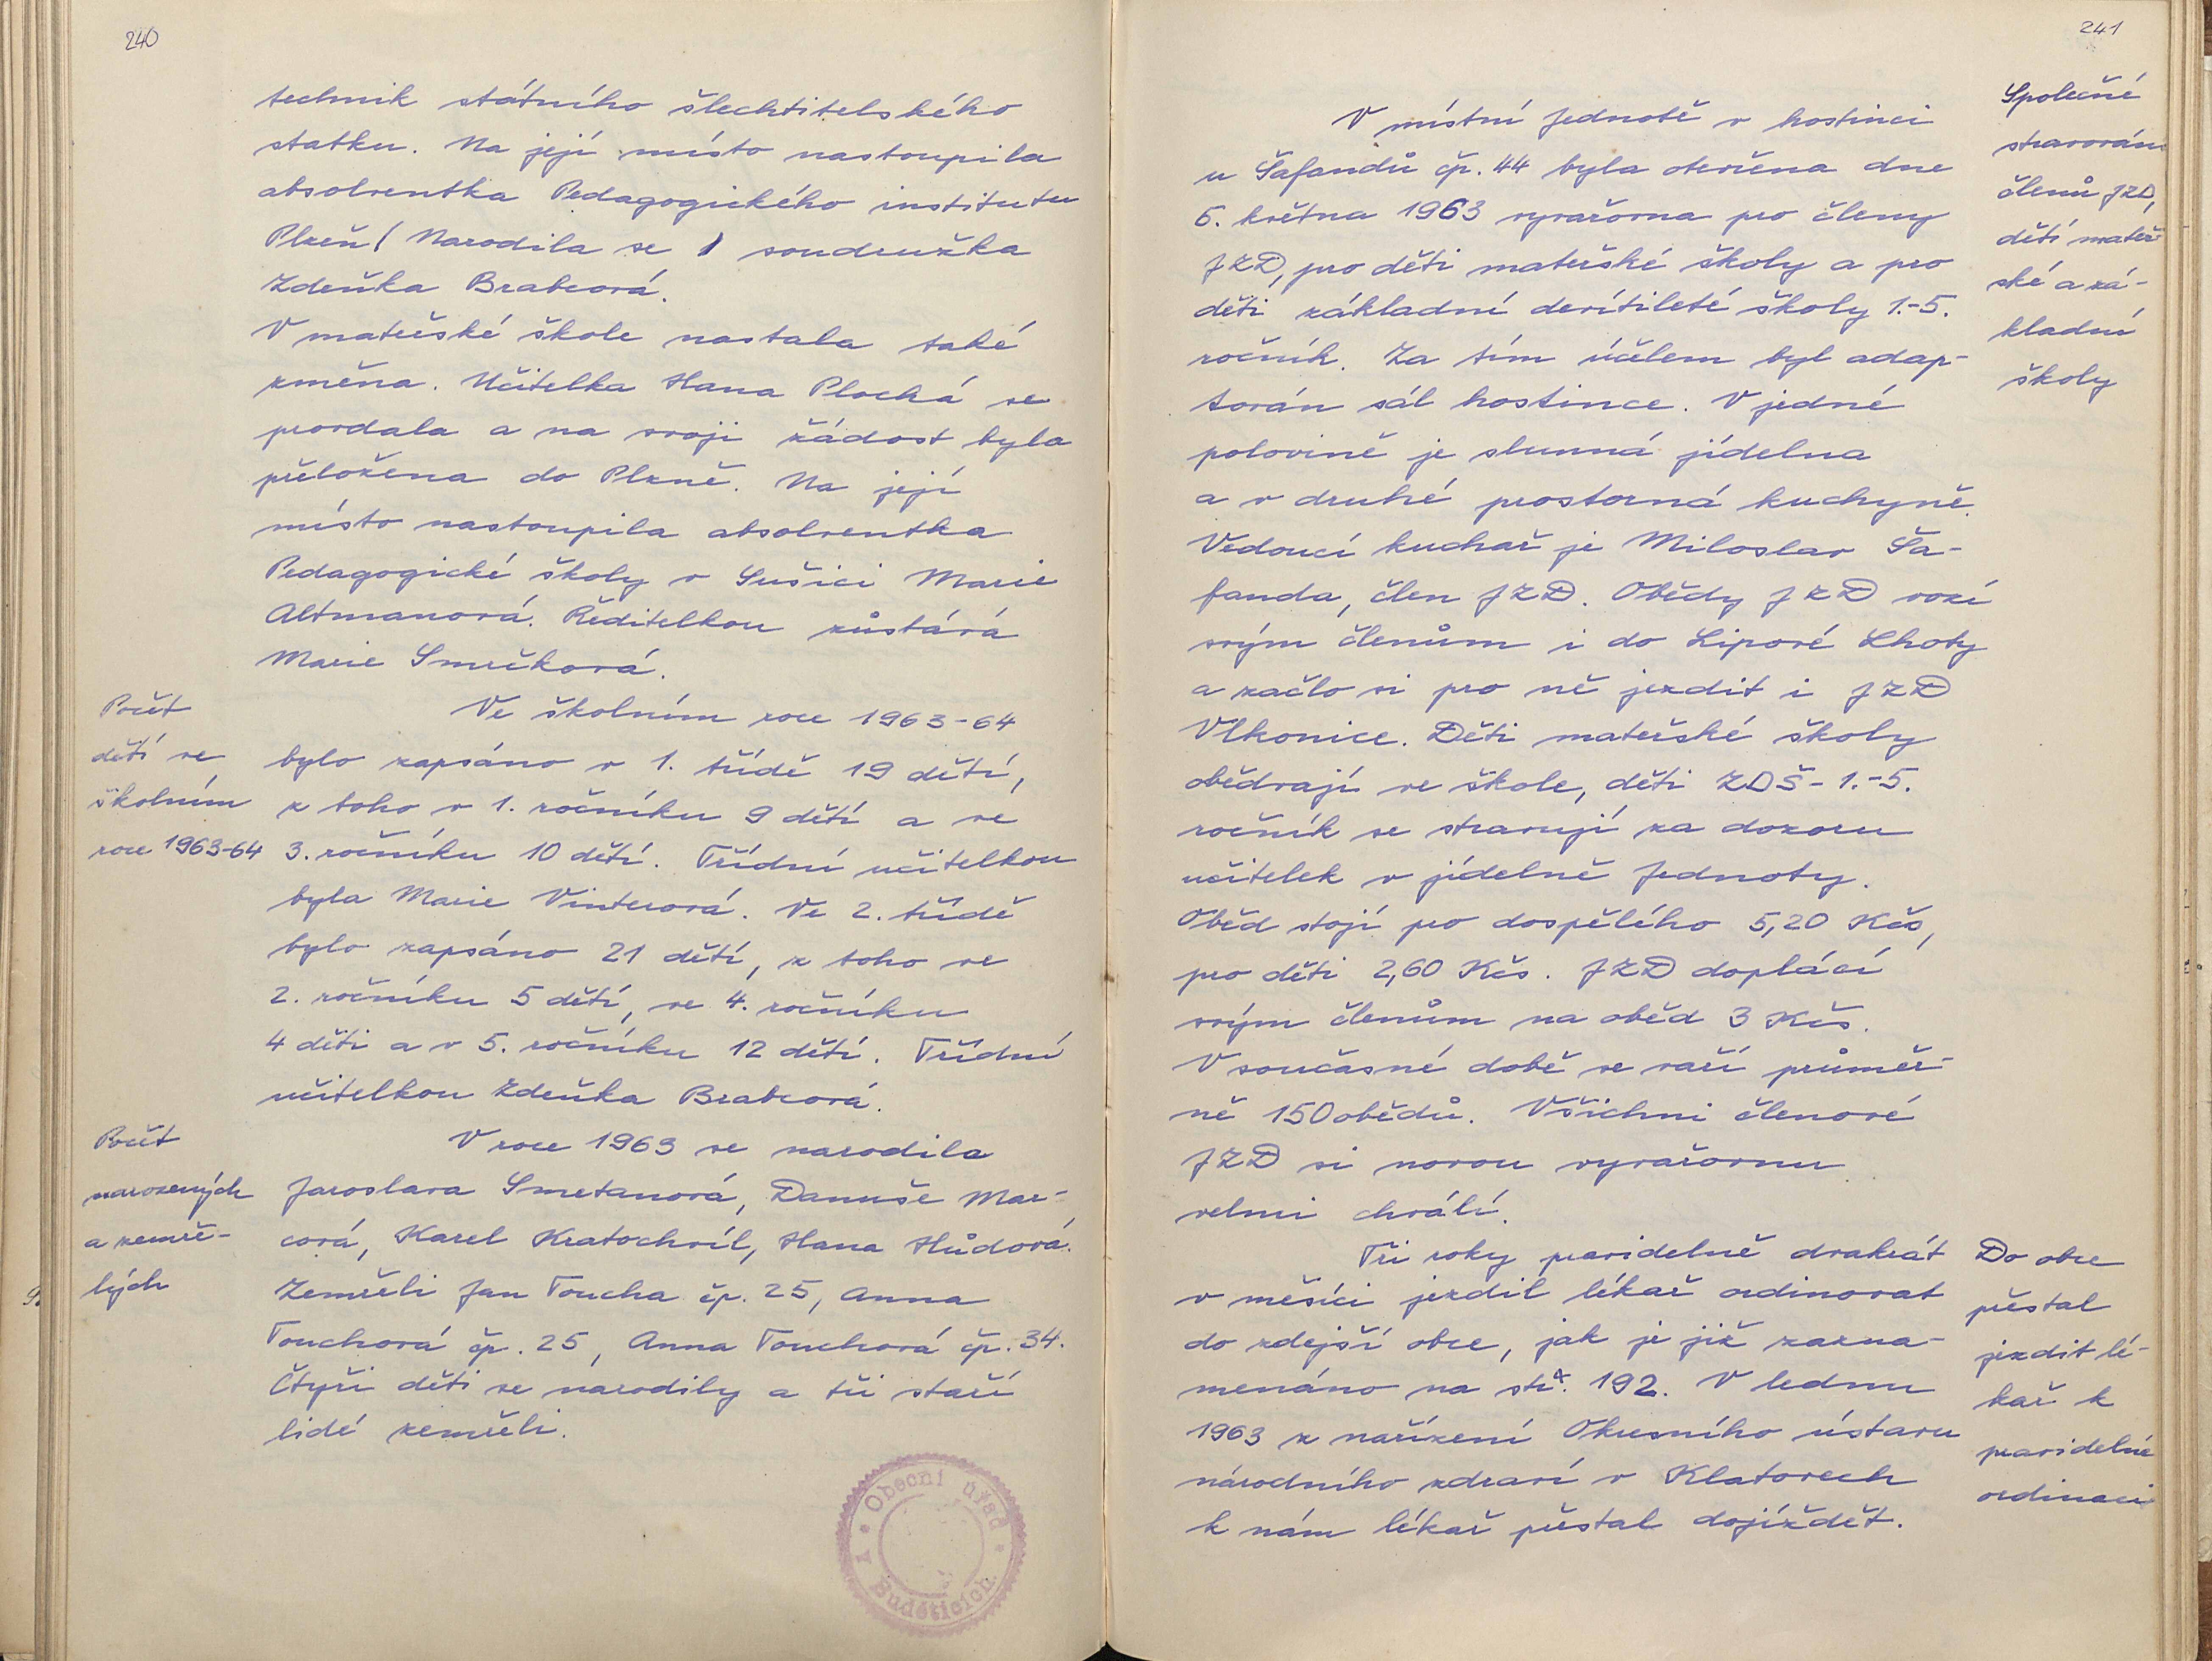 240
technik státního šlechtitelského
statku. Na její místo nastoupila
absolventka Pedagogického institutu
Plzeň ( Narodila se ) soudružka
Zdeňka Brabcová.
V mateřské škole nastala také
změna. Učitelka Hana Plochá se
provdala a na svoji žádost byla
přeložena do Plzně. Na její
místo nastoupila absolventka
Pedagogické školy v Sušici Marie
Altmanová. Ředitelkou zůstává
Marie Smrčková.
Počet
dětí ve
školním
roce 1963-64
Ve školním roce 1963-64
bylo zapsáno v 1. třídě 19 dětí,
z toho v 1. ročníku 9 dětí a ve
3. ročníku 10 dětí. Třídní učitelkou
byla Marie Vinterová. Ve 2. třídě
bylo zapsáno 21 dětí, z toho ve
2. ročníku 5 dětí, ve 4. ročníku
4 děti a v 5. ročníku 12 dětí. Třídní
učitelkou Zdeňka Brabcová.
Počet
narozených
a zemře-
lých
V roce 1963 se narodila
Jaroslava Smetanová, Danuše Mar-
cová, Karel Kratochvíl, Hana Hůdová.
Zemřeli Jan Toucha čp. 25, Anna
Touchová čp. 25, Anna Touchová čp. 34.
Čtyři děti se narodily a tři staří
lidé zemřeli.
Obecní úřad
v Budětticích
241
Společné
stravování
členů JZD,
dětí mateř-
ské a zá-
kladní
školy
V místní Jednotě v hostinci
u Šafandů čp. 44 byla otevřena dne
6. května 1963 vyvařovna pro členy
JZD, pro děti mateřské školy a pro
děti základní devítileté školy 1.-5.
ročník. Za tím účelem byl adap-
tován sál hostince. V jedné
polovině je slunná jídelna
a v druhé prostorná kuchyně.
Vedoucí kuchař je Miloslav Ša-
fanda, člen JZD. Obědy JZD vozí
svým členům i do Lipové Lhoty
a začlo si pro ně jezdit i JZD
Vlkonice. Děti mateřské školy
obědvají ve škole, děti ZDŠ - 1.-5.
ročník se stravují za dozoru
učitelek v jídelně Jednoty.
Oběd stojí pro dospělého 5,20 Kčs,
pro děti 2,60 Kčs. JZD doplácí
svým členům na oběd 3 Kčs.
V současné době se vaří průměr-
ně 150 obědů. Všichni členové
JZD si novou vyvařovnu
velmi chválí.
Do obce
přestal
jezdit lé-
kař k
pravidelné
ordinaci
Tři roky pravidelně dvakrát
v měsíci jezdil lékař ordinovat
do zdejší obce, jak je již zazna-
menáno na str. 192. V lednu
1963 z nařízení Okresního ústavu
národního zdraví v Klatovech
k nám lékař přestal dojíždět.